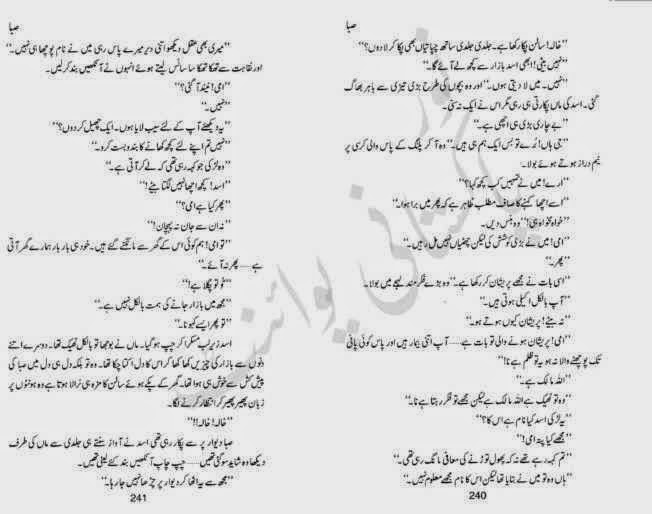 صبا
"خالہ! سالن پکا رکھا ہے۔ جلدی جلدی ساتھ چپاتیاں بھی پکا کر لا دوں؟"
"نہیں بیٹی! ابھی اسد بازار سے کچھ لے آئے گا۔"
"نہیں۔ میں لا دیتی ہوں۔" اور وہ بچوں کی طرح بڑی تیزی سے باہر بھاگ
گئی۔ اسد کی ماں پکارتی ہی رہی مگر اس نے ایک نہ سنی۔
"بے چاری بڑی ہی اچھی ہے۔"
"جی ہاں! بُرے تو بس ایک ہم ہی ہیں۔" وہ آ کر پلنگ کے پاس والی کرسی پر
نیم دراز ہوتے ہوئے بولا۔
"ارے! میں نے تمہیں کب کچھ کہا؟"
"اسے اچھا کہنے کا صاف مطلب ظاہر ہے کہ پھر میں برا ہوا۔"
"خواہ مخواہ ہی!" وہ ہنس دیں۔
"امی! میں نے بڑی کوشش کی لیکن چھٹیاں نہیں مل رہیں۔"
"پھر۔"
"اسی بات نے مجھے پریشان کر رکھا ہے۔" وہ بڑے فکر مند لہجے میں بولا۔
"آپ بالکل اکیلی ہوتی ہیں۔"
"نہ بیٹے! پریشان کیوں ہوتے ہو۔"
"امی! پریشان ہونے والی تو بات ہے— آپ اتنی بیمار ہیں اور پاس کوئی پانی
تک پوچھنے والا نہ ہو یہ تو ظلم ہے نا!"
"اللہ مالک ہے۔"
"وہ تو ٹھیک ہے اللہ مالک ہے لیکن مجھے تو فکر رہتا ہے نا۔"
"یہ لڑکی اسد کیا نام ہے اس کا؟"
"مجھے کیا پتہ امی!"
"تم کہہ رہے تھے نہ کہ پھول توڑنے کی معافی مانگ رہی تھی۔"
"ہاں وہ تو میں نے بتایا تھا لیکن اس کا نام مجھے معلوم نہیں۔"
240
صبا
"میری بھی عقل دیکھو اتنی دیر میرے پاس رہی میں نے نام پوچھا ہی نہیں۔"
اور نقاہت سے تھکا تھکا سا سانس لیتے ہوئے انہوں نے آنکھیں بند کر لیں۔
"امی! نیند آ گئی؟"
"نہیں۔"
"یہ دیکھئے آپ کے لئے سیب لایا ہوں۔ ایک چھیل کر دوں؟"
"نہیں تم اپنے لئے کچھ کھانے کا بندوبست کرو۔"
"وہ لڑکی جو کہہ رہی تھی کہ لے کر آتی ہے۔"
"اسد! کچھ اچھا نہیں لگتا بیٹے!"
"پھر کیا ہے امی؟"
"نہ ان سے جان نہ پہچان!"
"تو امی! ہم کوئی اس کے گھر سے مانگنے گئے ہیں۔ خود ہی بار بار ہمارے گھر آتی
ہے— پھر نہ آئے۔"
"تُو تو پگلا ہے!"
"مجھ میں بازار جانے کی ہمت بالکل نہیں ہے۔"
"تو پھر ایسے کیوں نا۔"
اسد زیر لب مسکرا کر چپ ہو گیا۔ ماں نے بوجھا تو بالکل ٹھیک تھا۔ دوسرے اتنے
دنوں سے بازار کی چیزیں کھا کھا کر اس کا دل اکتا چکا تھا۔ وہ تو بلکہ دل ہی دل میں صبا کی
پیش کش سے خوش ہی ہوا تھا۔ گھر کے پکے ہوئے سالن کا مزہ ہی نرالا ہوتا ہے وہ ہونٹوں پر
زبان پھیر پھیر کر انتظار کرنے لگا۔
"خالہ! خالہ!!"
صبا دیوار پر سے پکار رہی تھی اسد نے آواز سنتے ہی جلدی سے ماں کی طرف
دیکھا وہ شاید سو گئی تھیں— چپ چاپ آنکھیں بند کئے لیٹی تھیں۔
"مجھ سے یہ اٹھا کر دیوار پر چڑھا نہیں جا رہا۔"
241
پاکستانی پوائنٹ